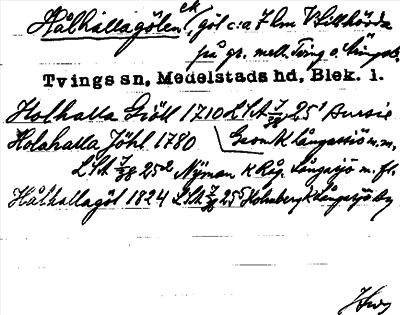 Hålhallagölen ek, göl c:a 7 km V Littkörda
på gr. mell. Tving o.
Tvings sn, Medelstads hd, Blek. l.
Holhalla Giöll 1710 LSA 7/38 25¹ Bursie
Holahalla Jöhl 1780 Geom K Långasjö m.m.
LSA 7/38 25² Nyman K Råg. Långsjö m. fl.
Hålhallagöl 1824 LSA 7/38 25⁵ Holmberg K Långsjöby